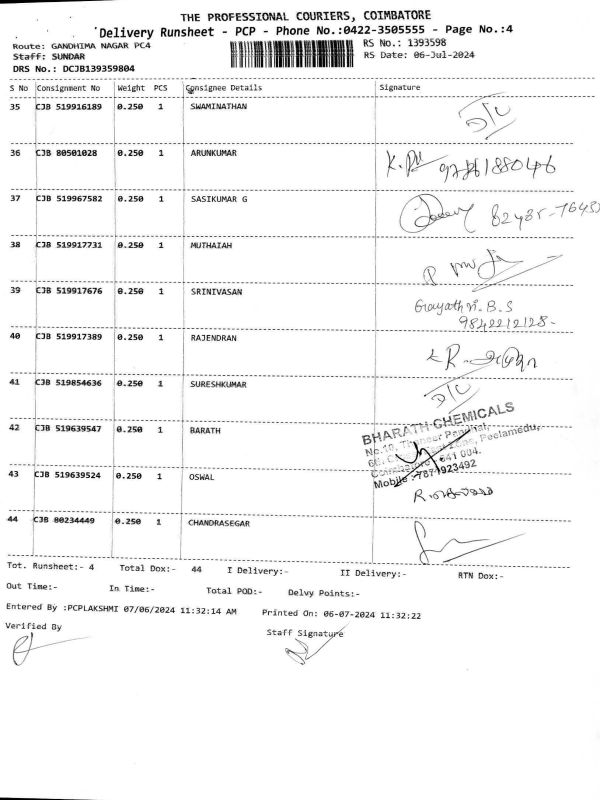 THE PROFESSIONAL COURIERS, COIMBATORE
Delivery Runsheet - PCP - Phone No.:0422-3505555 - Page No.:4
Route: GANDHIMA NAGAR PC4 RS No.: 1393598
Staff: SUNDAR RS Date: 06-Jul-2024
DRS No.: DCJB139359804
S No Consignment No Weight PCS Consignee Details Signature
35 CJB 519916189 0.250 1 SWAMINATHAN D/C
36 CJB 80501028 0.250 1 ARUNKUMAR
37 CJB 519967582 0.250 1 SASIKUMAR G
38 CJB 519917731 0.250 1 MUTHAIAH
39 CJB 519917676 0.250 1 SRINIVASAN Gayathri. B.S
9842212128-
40 CJB 519917389 0.250 1 RAJENDRAN
41 CJB 519854636 0.250 1 SURESHKUMAR D/C
42 CJB 519639547 0.250 1 BARATH BHARATH CHEMICALS
Peelamedu,
641 004.
Mobile : 7871923492
43 CJB 519639524 0.250 1 OSWAL
44 CJB 80234449 0.250 1 CHANDRASEGAR
Tot. Runsheet:- 4 Total Dox:- 44 I Delivery:- II Delivery:- RTN Dox:-
Out Time:- In Time:- Total POD:- Delvy Points:-
Entered By :PCPLAKSHMI 07/06/2024 11:32:14 AM Printed On: 06-07-2024 11:32:22
Verified By Staff Signature